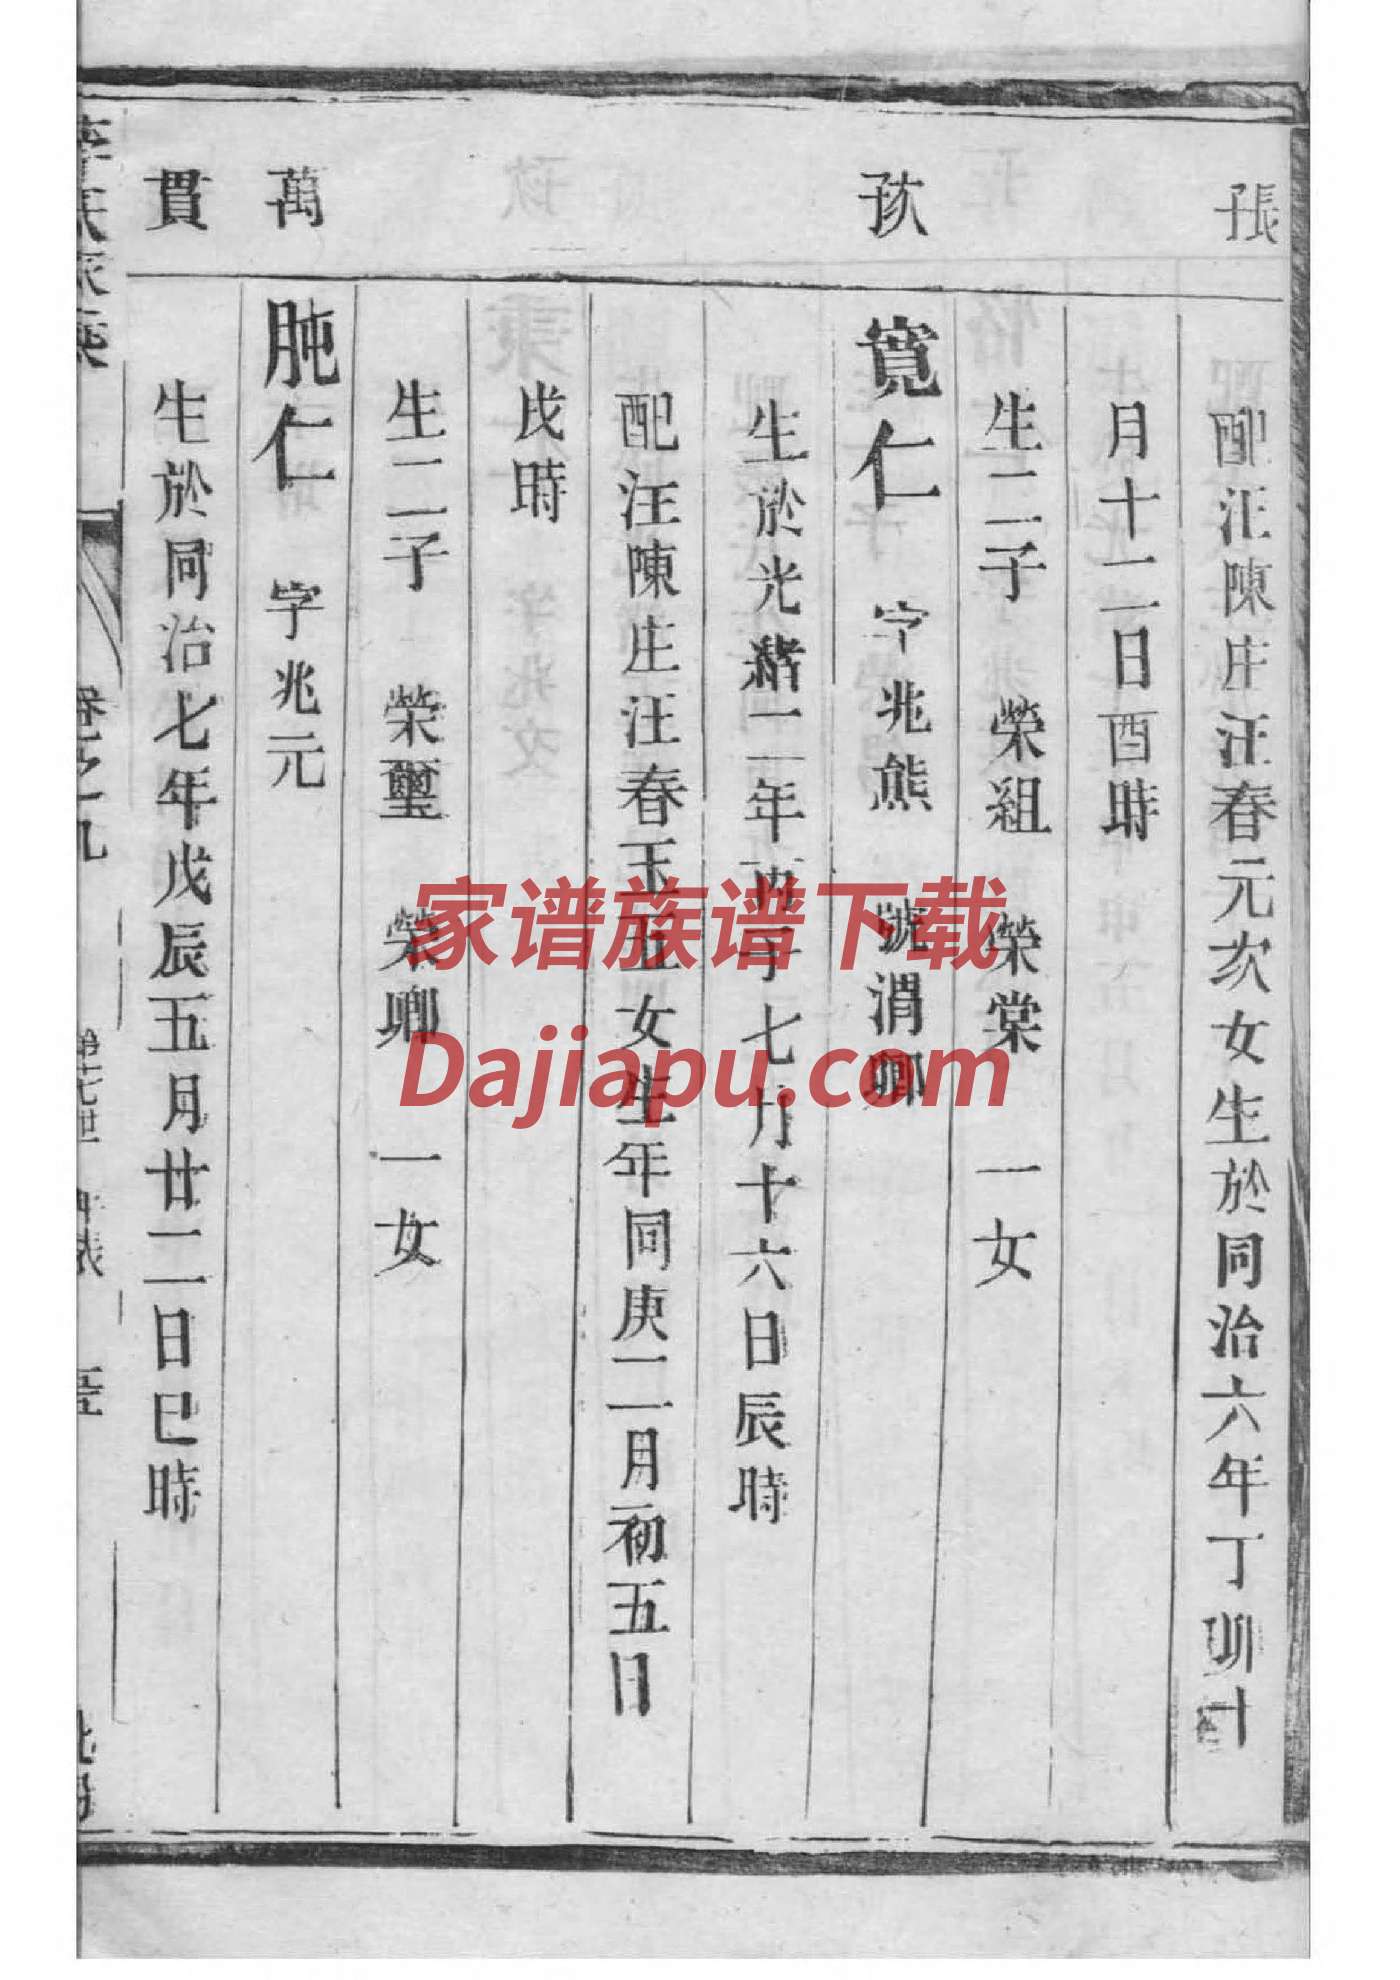 張
配汪陳庄汪春元次女生於同治六年丁卯十
月十二日酉時
生二子 榮組 榮棠 一女
孩
寬仁 字兆熊 號渭卿
生於光緒二年丙子七月十六日辰時
配汪陳庄汪春玉五女生年同庚二月初五日
戌時
生二子 榮璽 榮卿 一女
萬
肫仁 字兆元
貫
生於同治七年戊辰五月廿二日巳時
卷之九
家谱族谱下载
Dajiapu.com